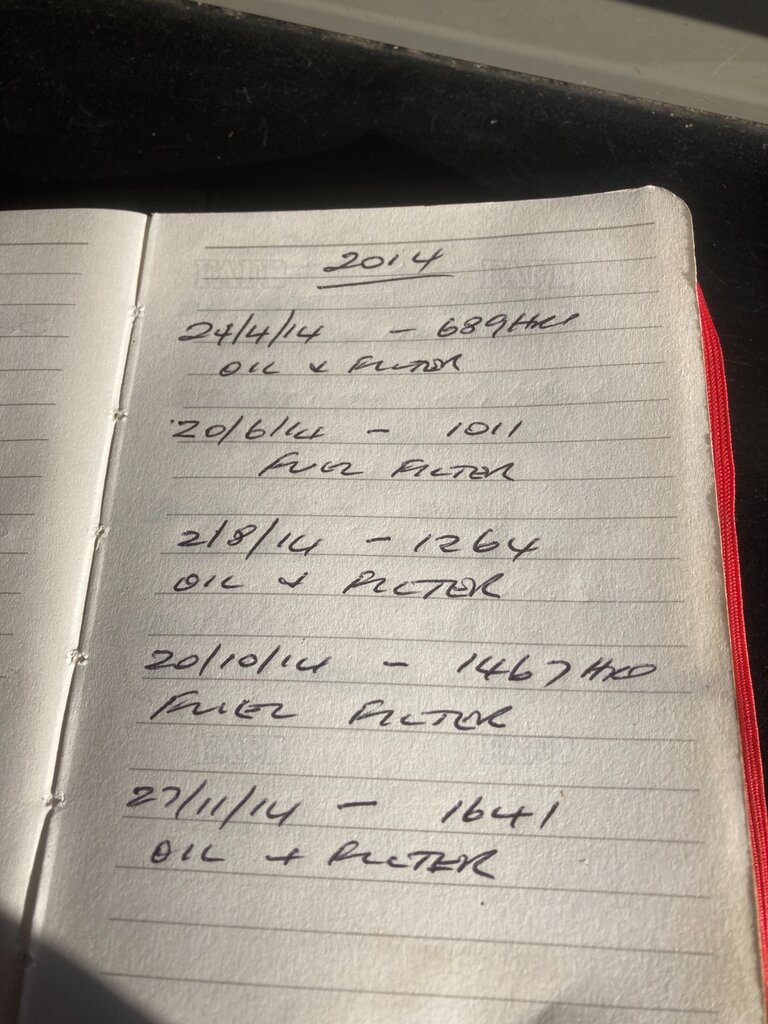 2014
24/4/14 - 689 HRS
OIL + FILTER
20/6/14 - 1011
FUEL FILTER
2/8/14 - 1264
OIL + FILTER
20/10/14 - 1467 HRS
FUEL FILTER
27/11/14 - 1641
OIL + FILTER